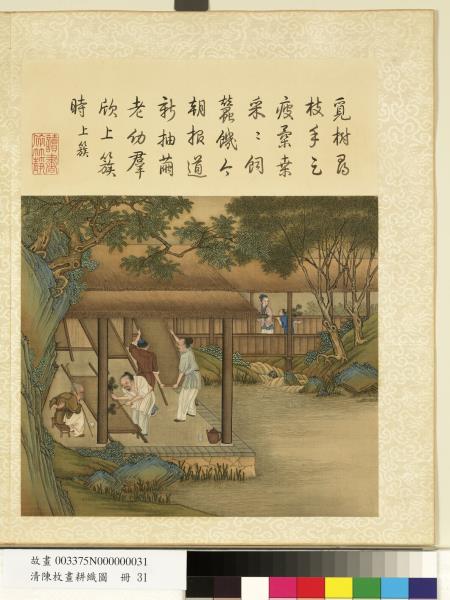 覓樹尋
枝手足
疲柔桑
采〻飼
蠶饑今
朝報道
新抽繭
老幼羣
欣上簇
時 上簇
讀書
故畫 003375N000000031
清陳枚畫耕織圖 冊 31